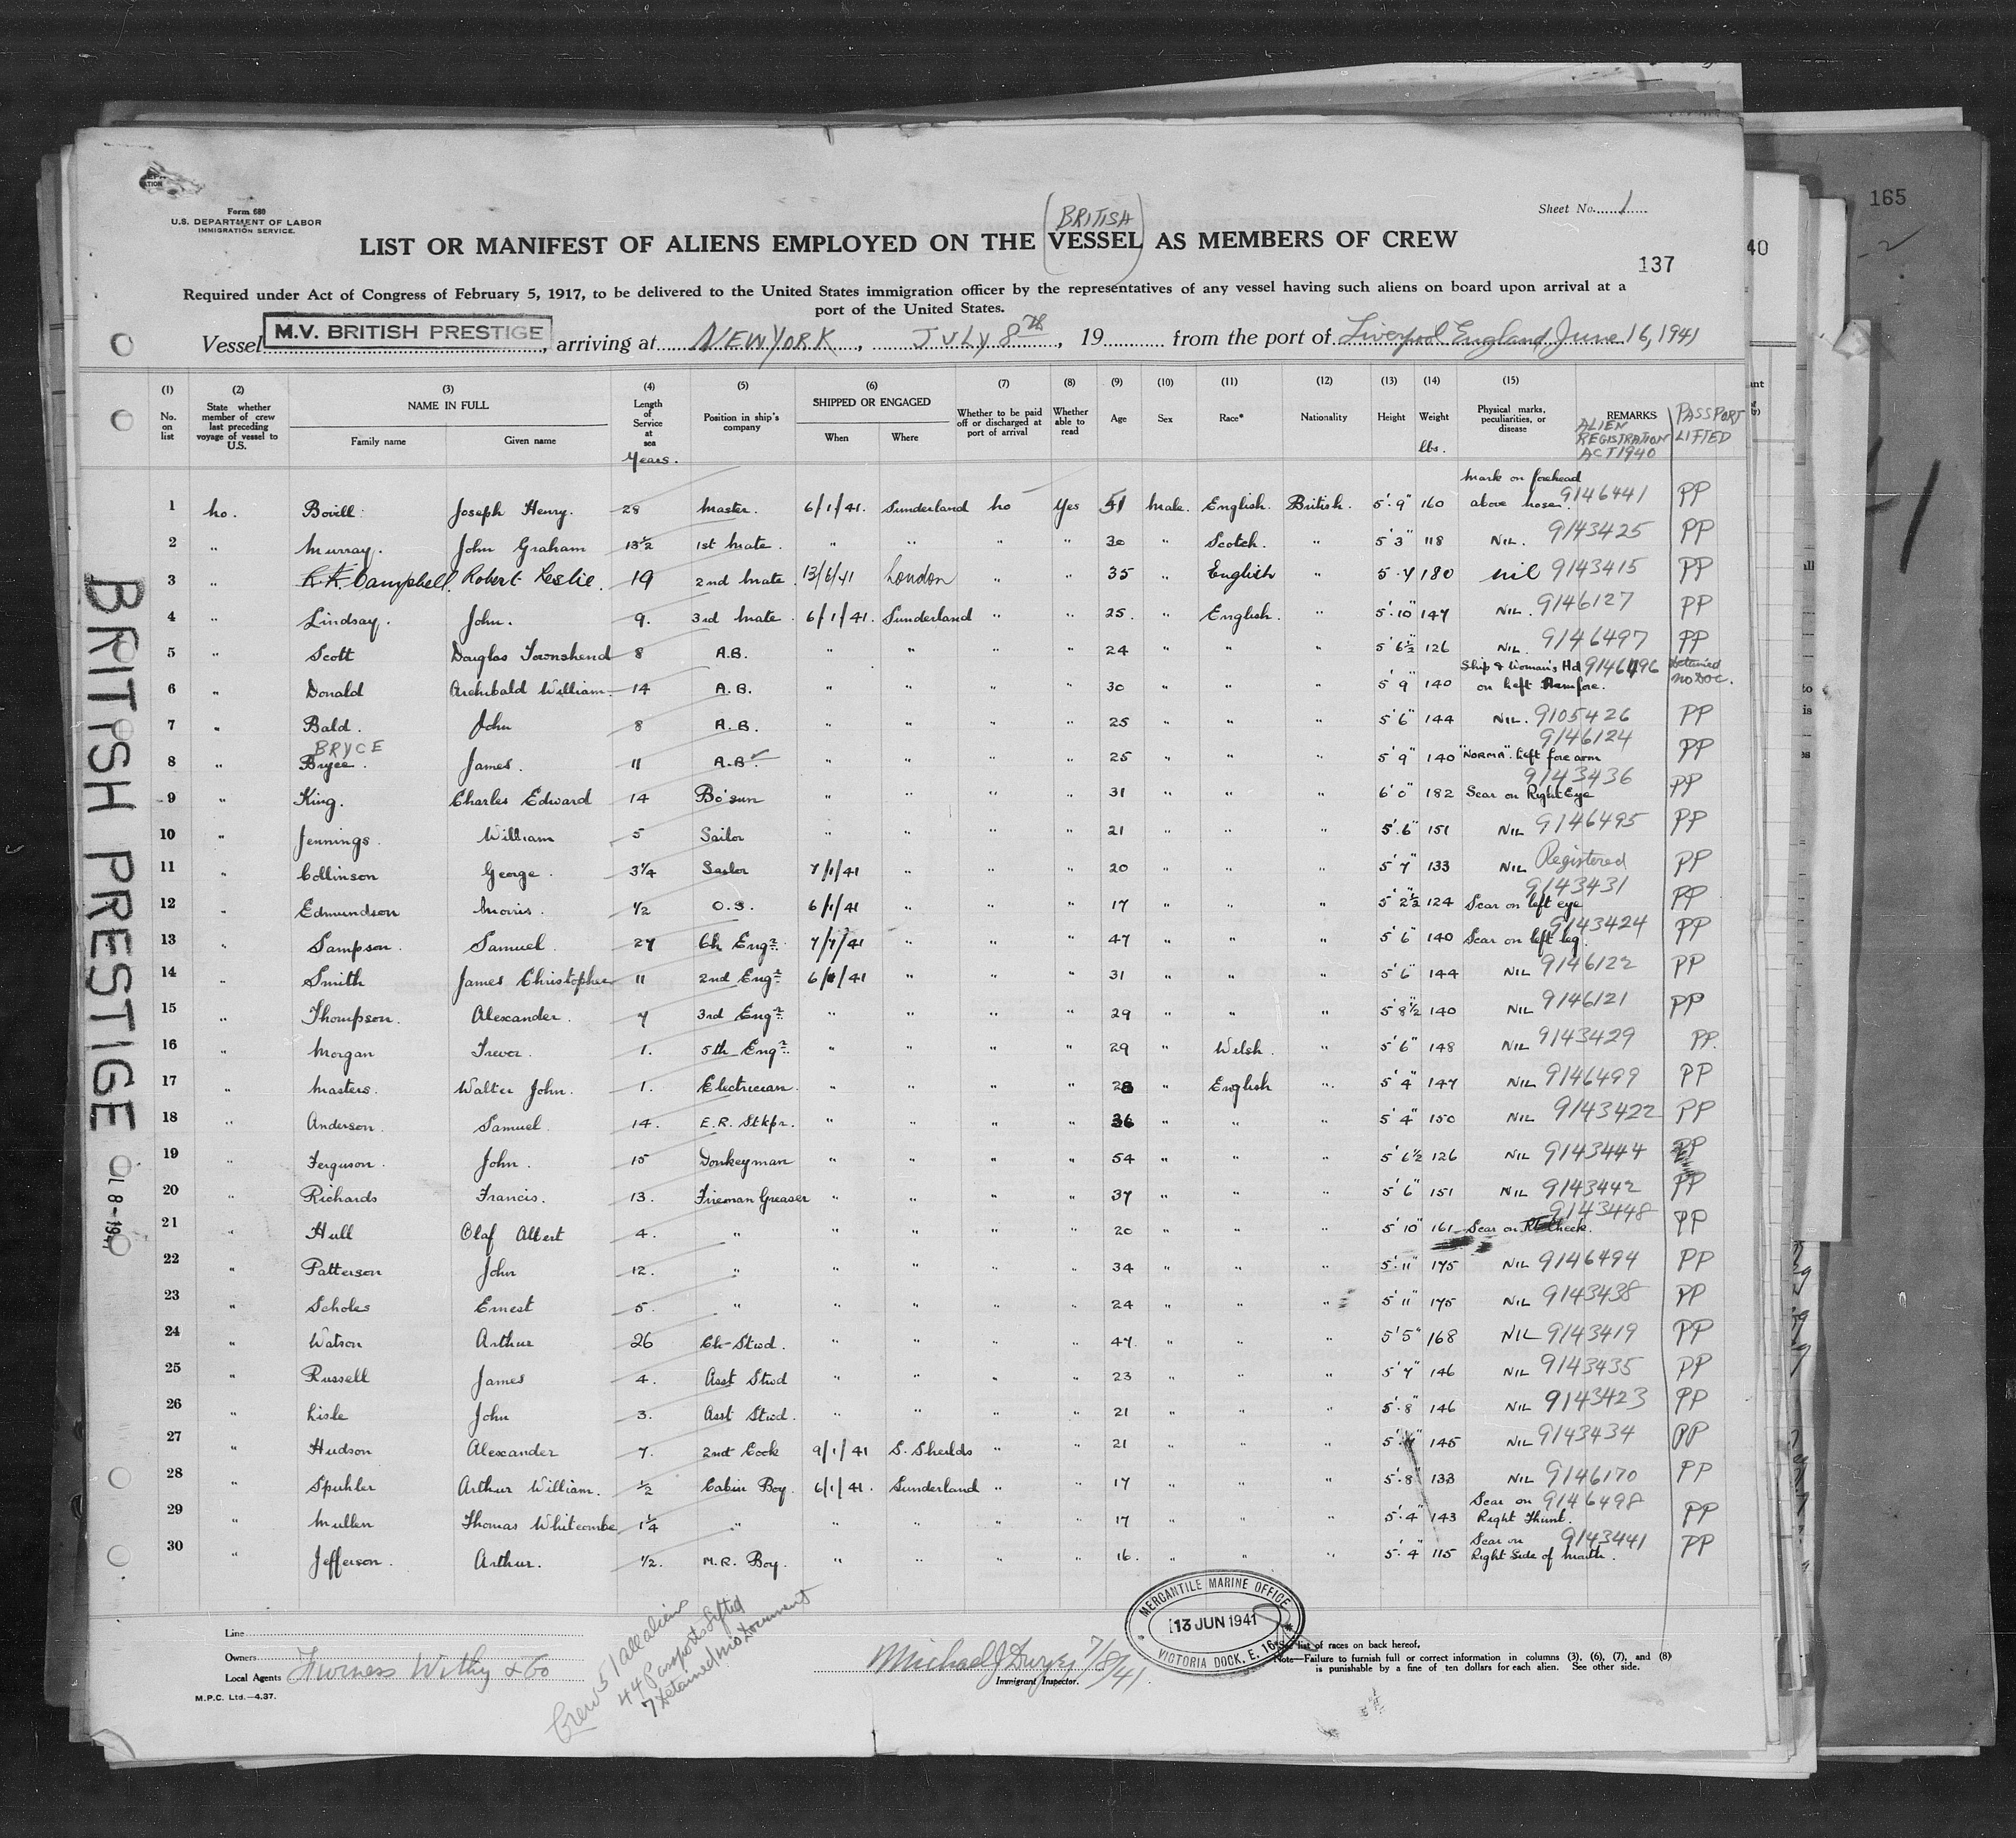 165
40
137
Form 680
U.S. DEPARTMENT OF LABOR
IMMIGRATION SERVICE.
Sheet No. 1
(BRITISH)
LIST OR MANIFEST OF ALIENS EMPLOYED ON THE VESSEL AS MEMBERS OF CREW
Required under Act of Congress of February 5, 1917, to be delivered to the United States immigration officer by the representatives of any vessel having such aliens on board upon arrival at a
port of the United States.
Vessel M.V. BRITISH PRESTIGE, arriving at NEW YORK, JULY 8th, 19 from the port of Liverpool England June 16, 1941
(1) (2) (3) (4) (5) (6) (7) (8) (9) (10) (11) (12) (13) (14) (15)
No. on list
State whether member of crew last preceding voyage of vessel to U.S.
NAME IN FULL
Family name
Given name
Length of Service at sea
Years.
Position in ship's company
SHIPPED OR ENGAGED
When
Where
Whether to be paid off or discharged at port of arrival
Whether able to read
Age
Sex
Race*
Nationality
Height
Weight
lbs.
Physical marks, peculiarities, or disease
REMARKS
ALIEN REGISTRATION ACT 1940
PASSPORT LIFTED
1 no. Bovill Joseph Henry. 28 Master. 6/1/41. Sunderland no Yes 51 Male. English. British. 5'.9" 160 Mark on forehead above nose. 9146441 PP
2 " Murray. John Graham 13½ 1st Mate. " " " " 30 " Scotch. " 5'3" 118 NIL. 9143425 PP
3 " Campbell. Robert Leslie. 19 2nd Mate. 13/6/41 London " " 35 " English " 5.7 180 nil 9143415 PP
4 " Lindsay. John. 9. 3rd Mate. 6/1/41. Sunderland " " 25. " English. " 5'.10" 147 NIL. 9146127 PP
5 " Scott Douglas Townshend 8 A.B. " " " " 24 " " " 5'6½" 126 NIL. 9146497 PP
6 " Donald Archibald William. 14 A.B. " " " " 30 " " " 5'9" 140 Ship & Woman's Hd on Left 9146496 Detained no Doc.
7 " Bald. John 8 A.B. " " " " 25 " " " 5'6" 144 NIL. 9105426 PP
BRYCE
8 " Bryce. James. 11 A.B. " " " " 25 " " " 5'9" 140 "NORMA". Left fore arm 9146124 PP
9 " King. Charles Edward 14 Bo'sun " " " " 31 " " " 6'0" 182 Scar on Right Eye 9143436 PP
10 " Jennings. William 5 Sailor " " " " 21 " " " 5'.6" 151 NIL 9146495 PP
11 " Collinson George. 3¼ Sailor 7/1/41 " " " 20 " " " 5'7" 133 NIL Registered PP
12 " Edmundson Morris. ½ O.S. 6/1/41 " " " 17 " " " 5'2½" 124 Scar on left eye 9143431 PP
13 " Sampson. Samuel. 27 Ch Engr. 7/1/41 " " " 47 " " " 5'6" 140 Scar on left leg. 9143424 PP
14 " Smith James Christopher 11 2nd Engr. 6/1/41 " " " 31 " " " 5'6" 144 NIL 9146122 PP
15 " Thompson. Alexander. 7 3rd Engr. " " " " 29 " " " 5'8½" 140 NIL 9146121 PP
16 " Morgan Trevor. 1. 5th Engr. " " " " 29 " Welsh. " 5'6" 148 NIL 9143429 PP.
17 " Masters. Walter John. 1. Electrician. " " " " 28 " English " 5'4" 147 NIL 9146499 PP
18 " Anderson. Samuel. 14. E.R. Stkpr. " " " " 36 " " " 5'4" 150 NIL 9143422 PP
19 " Ferguson. John. 15 Donkeyman " " " " 54 " " " 5'6½ 126 NIL 9143444 PP
20 " Richards Francis. 13. Fireman Greaser " " " " 37 " " " 5'6" 151 NIL 9143442 PP
21 " Hull Olaf Albert 4. " " " " " 20 " " " 5'10" 161 Scar on Rt Cheek. 9143448 PP
22 " Patterson John 12. " " " " " 34 " " " 5'.11" 175 NIL 9146494 PP
23 " Scholes Ernest 5. " " " " " 24 " " " 5'11" 175 NIL 9143438 PP
24 " Watson Arthur 26 Ch-Stwd. " " " " 47. " " " 5'5" 168 NIL 9143419 PP
25 " Russell James 4. Asst Stwd " " " " 23 " " " 5'7" 146 NIL 9143435 PP
26 " Lisle John 3. Asst Stwd. " " " " 21 " " " 5'.8" 146 NIL 9143423 PP
27 " Hudson Alexander 7. 2nd Cook 9/1/41 S. Sheilds " " 21 " " " 5'.7" 145 NIL 9143434 PP
28 " Spuhler Arthur William. ½ Cabin Boy. 6/1/41. Sunderland " " 17 " " " 5'.8" 133 NIL 9146170 PP
29 " Mullen Thomas Whitcombe 1¼ " " " " " 17 " " " 5'.4" 143 Scar on Right Thumb. 9146498 PP
30 " Jefferson. Arthur. ½. M.R. Boy. " " " " 16. " " " 5'.4" 115 Scar on Right Side of Mouth. 9143441 PP
BRITISH PRESTIGE
Line
Owners
Local Agents Furness Withy & Co
M.P.C. Ltd.—4.37.
Crew 51 all aliens
44 Passports Lifted
7 Detained no Document
Michael J Durgey 7/8/41.
Immigrant Inspector.
MERCANTILE MARINE OFFICE
13 JUN 1941
VICTORIA DOCK. E. 16
list of races on back hereof.
Note—Failure to furnish full or correct information in columns (3), (6), (7), and (8)
is punishable by a fine of ten dollars for each alien. See other side.